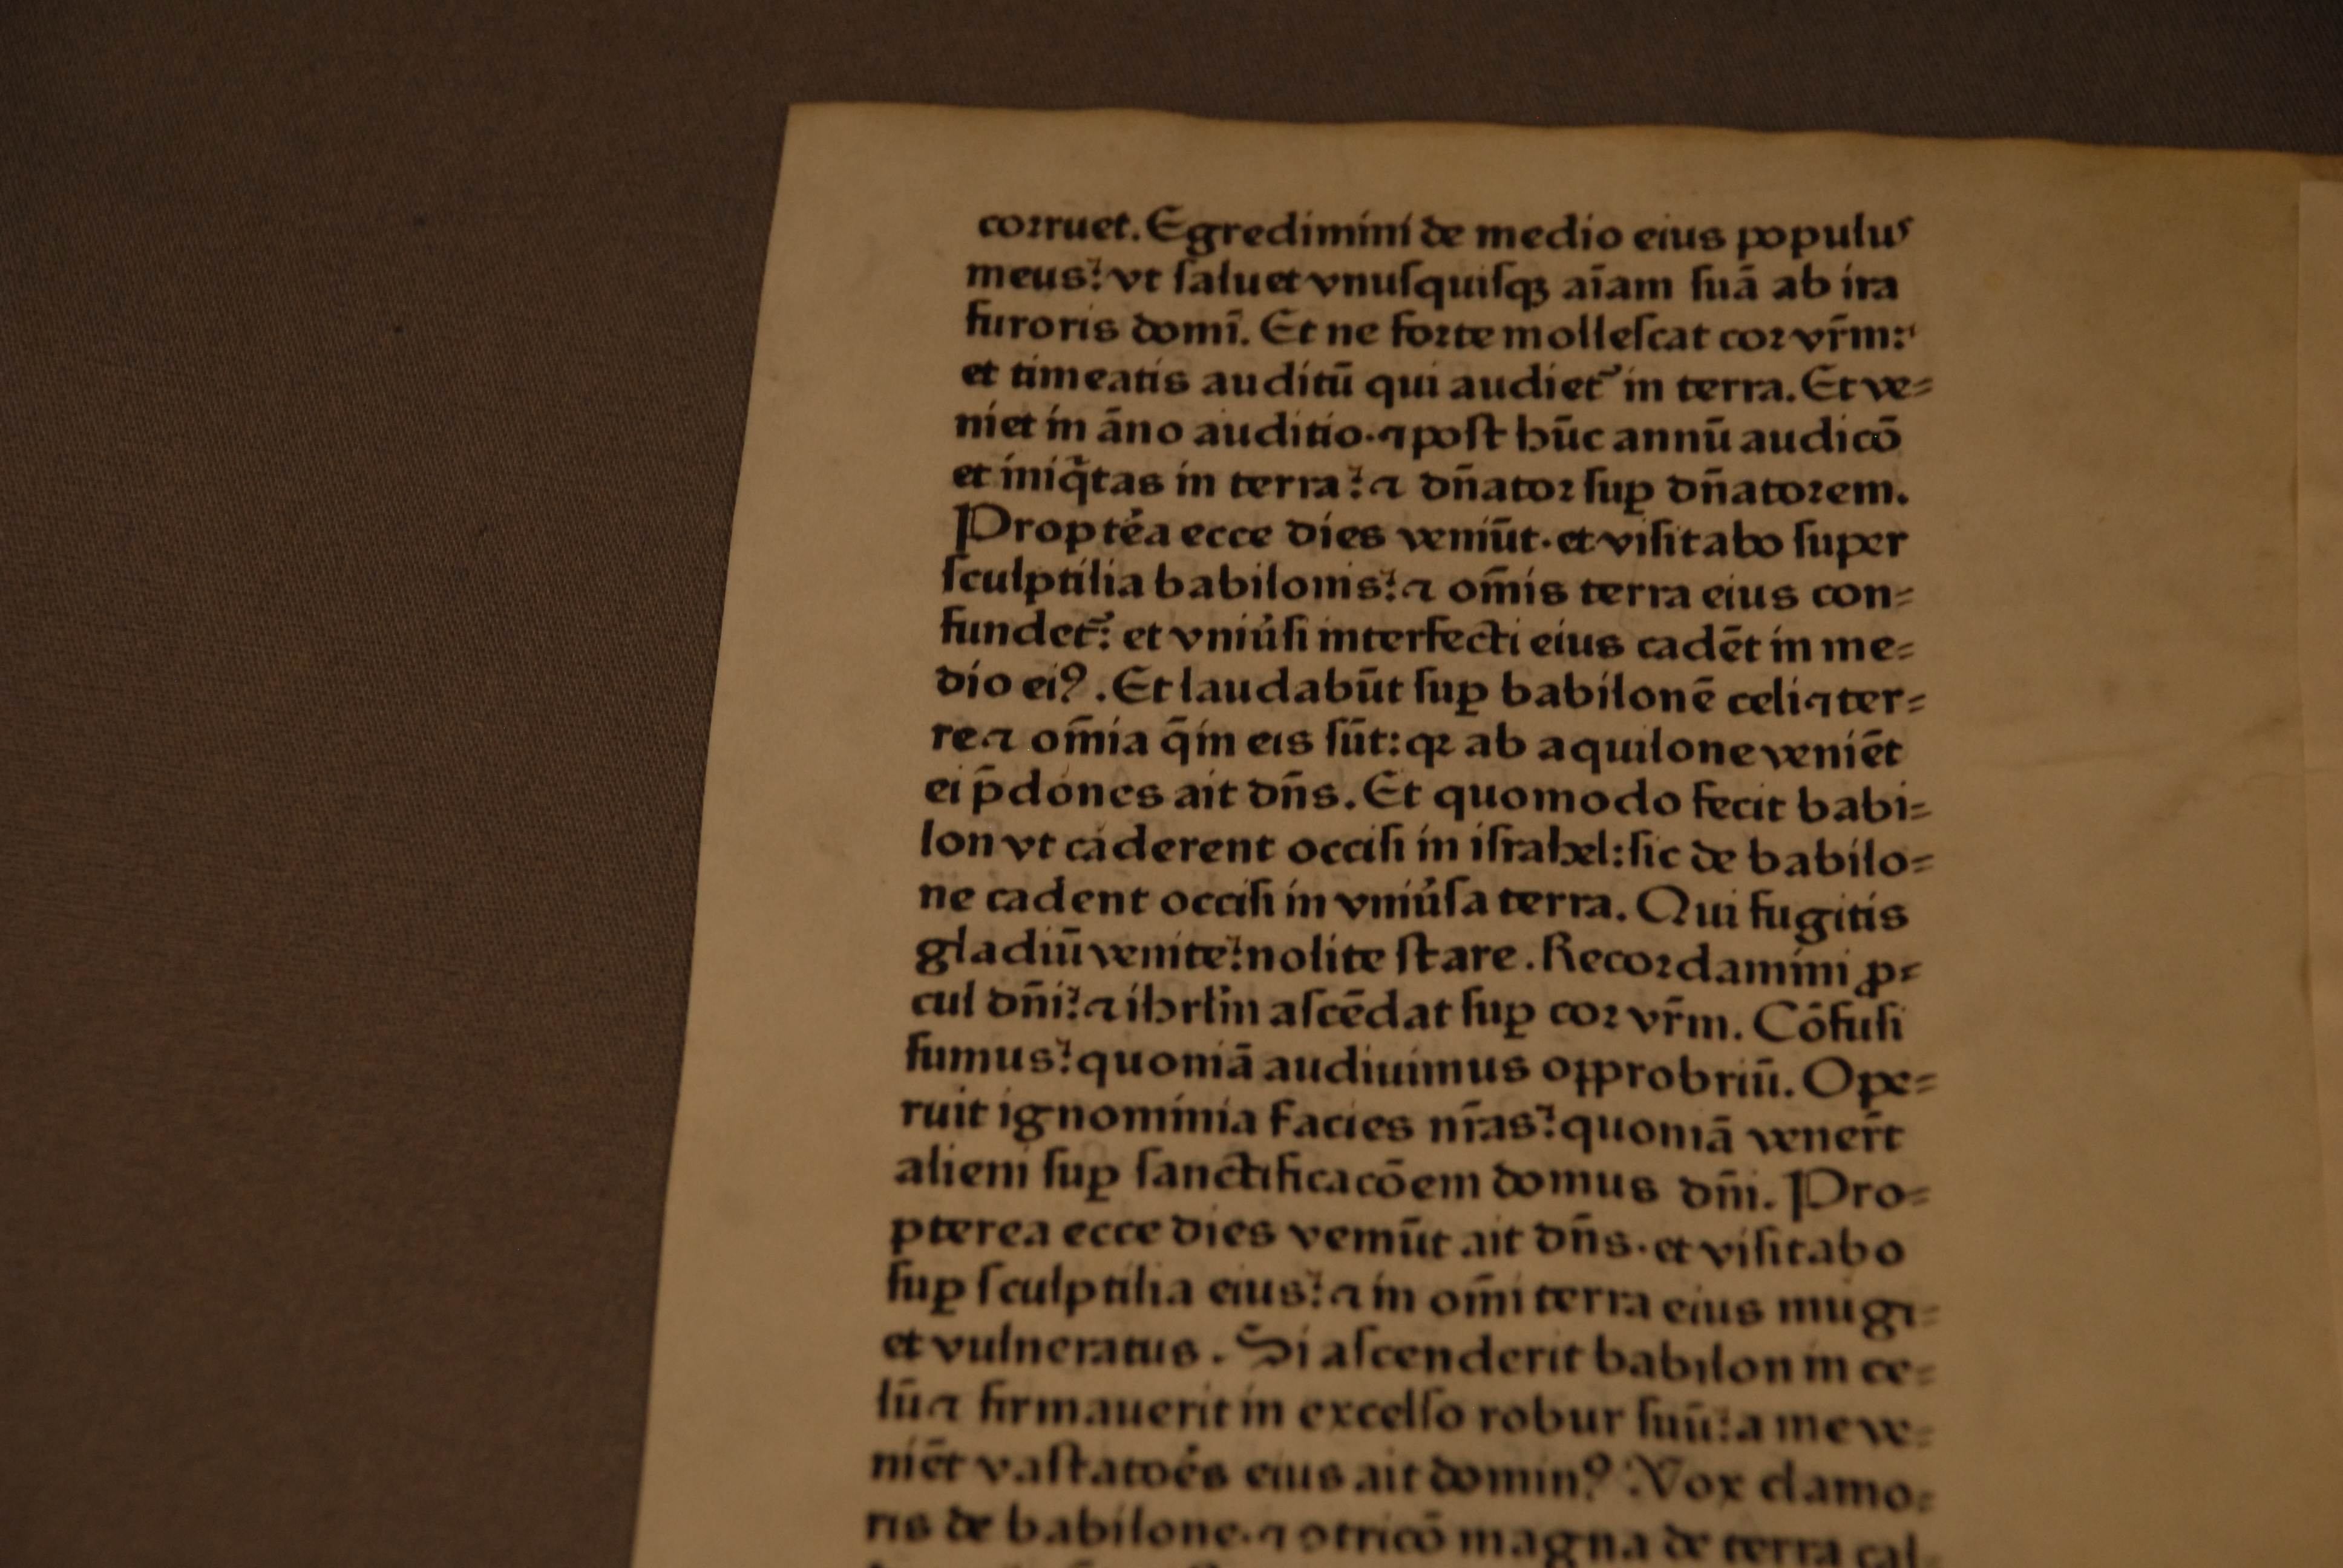 corruet. Egredimini de medio eius populus
meus: vt saluet vnusquisqꝫ aīam suā ab ira
furoris domī. Et ne forte mollescat cor vr̄m:
et timeatis auditū qui audiet᷑ in terra. Et ve=
niet in āno auditio·⁊ post hūc annū audicō
et iniq̄tas in terra: ⁊ dn̄ator suꝑ dn̄atorem.
Propt̓ea ecce dies veniūt·et visitabo super
sculptilia babilonis: ⁊ om̄is terra eius con=
fundet᷑: et vniu̓si interfecti eius cadēt in me=
dio eiꝰ. Et laudabūt suꝑ babilonē celi ⁊ ter=
re ⁊ om̄ia q̄ in eis sūt: qꝛ ab aquilone veniēt
ei p̄dones ait dn̄s. Et quomodo fecit babi=
lon vt caderent occisi in israhel: sic de babilo=
ne cadent occisi in vniu̓sa terra. Qui fugitis
gladiū venite: nolite stare. Recordamini ꝓ=
cul dn̄i: ⁊ ihrl̄m ascēdat suꝑ cor vr̄m. Cōfusi
sumus: quoniā audiuimus opprobriū. Ope=
ruit ignominia facies nr̄as: quoniā vener̄t
alieni suꝑ sanctificacōem domus dn̄i. Pro=
pterea ecce dies veniūt ait dn̄s·et visitabo
suꝑ sculptilia eius: ⁊ in om̄i terra eius mugi=
et vulneratus. Si ascenderit babilon in ce=
lū ⁊ firmauerit in excelso robur suū: a me ve=
niēt vastato̓es eius ait dominꝰ. Vox clamo=
ris de babilone·⁊ ꝯtricō magna de terra cal=